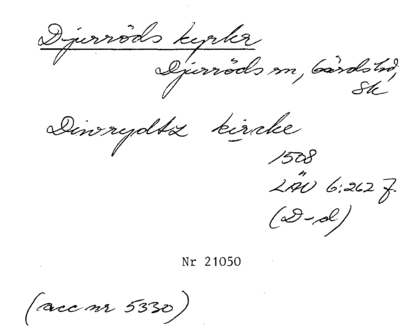 Djurröds kyrka
Djurröds sn, Gärds hd,
Sk
Diwrydtz kircke
1508
LÄU 6:262 f.
(D-d)
Nr 21050
(acc nr 5330)